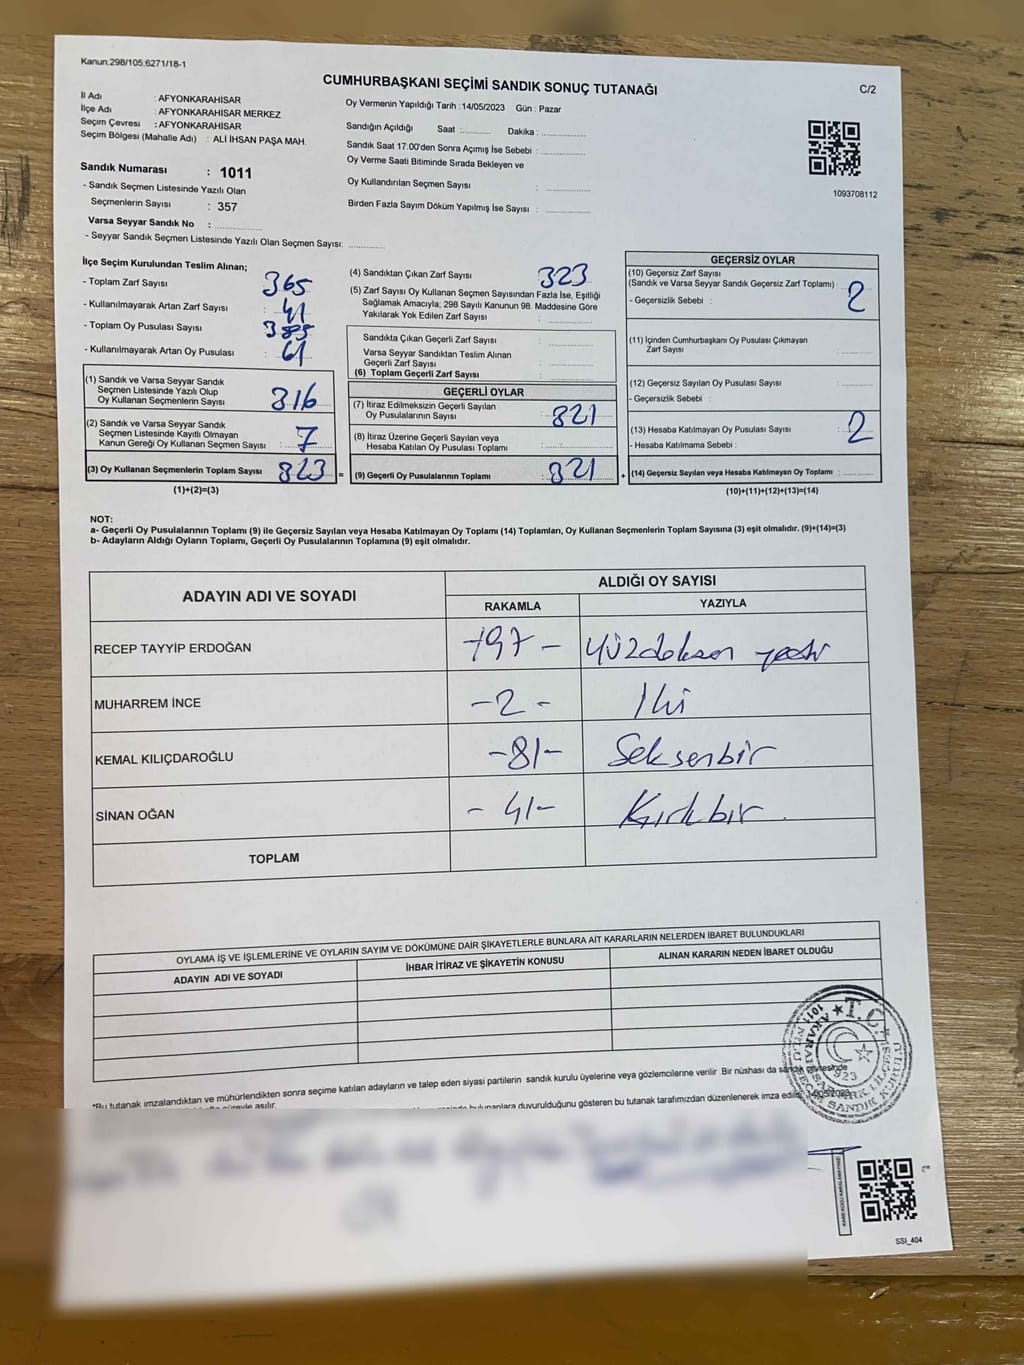 Kanun:298/105;6271/18-1
CUMHURBAŞKANI SEÇİMİ SANDIK SONUÇ TUTANAĞI
C/2
İl Adı : AFYONKARAHİSAR
İlçe Adı : AFYONKARAHİSAR MERKEZ
Seçim Çevresi : AFYONKARAHİSAR
Seçim Bölgesi (Mahalle Adı) : ALİ İHSAN PAŞA MAH.
Oy Vermenin Yapıldığı Tarih : 14/05/2023 Gün : Pazar
Sandığın Açıldığı Saat :........... Dakika :................
Sandık Saat 17:00'den Sonra Açımış İse Sebebi :................
Oy Verme Saati Bitiminde Sırada Bekleyen ve
Oy Kullandırılan Seçmen Sayısı :................
Birden Fazla Sayım Döküm Yapılmış İse Sayısı :................
1093708112
Sandık Numarası : 1011
- Sandık Seçmen Listesinde Yazılı Olan
Seçmenlerin Sayısı : 357
Varsa Seyyar Sandık No :................
- Seyyar Sandık Seçmen Listesinde Yazılı Olan Seçmen Sayısı:............
İlçe Seçim Kurulundan Teslim Alınan;
- Toplam Zarf Sayısı : 365
- Kullanılmayarak Artan Zarf Sayısı : 41
- Toplam Oy Pusulası Sayısı : 385
- Kullanılmayarak Artan Oy Pusulası : 61
(1) Sandık ve Varsa Seyyar Sandık
Seçmen Listesinde Yazılı Olup
Oy Kullanan Seçmenlerin Sayısı : 316
(2) Sandık ve Varsa Seyyar Sandık
Seçmen Listesinde Kayıtlı Olmayan
Kanun Gereği Oy Kullanan Seçmen Sayısı : 7
(3) Oy Kullanan Seçmenlerin Toplam Sayısı 323 =
(1)+(2)=(3)
(4) Sandıktan Çıkan Zarf Sayısı : 323
(5) Zarf Sayısı Oy Kullanan Seçmen Sayısından Fazla İse, Eşitliği
Sağlamak Amacıyla; 298 Sayılı Kanunun 98. Maddesine Göre
Yakılarak Yok Edilen Zarf Sayısı :................
Sandıkta Çıkan Geçerli Zarf Sayısı :................
Varsa Seyyar Sandıktan Teslim Alınan
Geçerli Zarf Sayısı :................
(6) Toplam Geçerli Zarf Sayısı :................
GEÇERLİ OYLAR
(7) İtiraz Edilmeksizin Geçerli Sayılan
Oy Pusulalarının Sayısı : 321
(8) İtiraz Üzerine Geçerli Sayılan veya
Hesaba Katılan Oy Pusulası Toplamı :................
(9) Geçerli Oy Pusulalarının Toplamı : 321 +
GEÇERSİZ OYLAR
(10) Geçersiz Zarf Sayısı
(Sandık ve Varsa Seyyar Sandık Geçersiz Zarf Toplamı) : 2
- Geçersizlik Sebebi :
(11) İçinden Cumhurbaşkanı Oy Pusulası Çıkmayan
Zarf Sayısı :............
(12) Geçersiz Sayılan Oy Pusulası Sayısı :............
- Geçersizlik Sebebi :
(13) Hesaba Katılmayan Oy Pusulası Sayısı : 2
- Hesaba Katılmama Sebebi :
(14) Geçersiz Sayılan veya Hesaba Katılmayan Oy Toplamı :............
(10)+(11)+(12)+(13)=(14)
NOT:
a- Geçerli Oy Pusulalarının Toplamı (9) ile Geçersiz Sayılan veya Hesaba Katılmayan Oy Toplamı (14) Toplamları, Oy Kullanan Seçmenlerin Toplam Sayısına (3) eşit olmalıdır. (9)+(14)=(3)
b- Adayların Aldığı Oyların Toplamı, Geçerli Oy Pusulalarının Toplamına (9) eşit olmalıdır.
ADAYIN ADI VE SOYADI ALDIĞI OY SAYISI
RAKAMLA YAZIYLA
RECEP TAYYİP ERDOĞAN -197- Yüzdoksan yedi
MUHARREM İNCE -2- İki
KEMAL KILIÇDAROĞLU -81- Seksenbir
SİNAN OĞAN -41- Kırkbir
TOPLAM
OYLAMA İŞ VE İŞLEMLERİNE VE OYLARIN SAYIM VE DÖKÜMÜNE DAİR ŞİKAYETLERLE BUNLARA AİT KARARLARIN NELERDEN İBARET BULUNDUKLARI
ADAYIN ADI VE SOYADI İHBAR İTİRAZ VE ŞİKAYETİN KONUSU ALINAN KARARIN NEDEN İBARET OLDUĞU
*Bu tutanak imzalandıktan ve mühürlendikten sonra seçime katılan adayların ve talep eden siyasi partilerin sandık kurulu üyelerine veya gözlemcilerine verilir. Bir nüshası da sandık çevresinde
bulunanlara duyurulduğunu gösteren bu tutanak tarafımızdan düzenlenerek imza edildi. 14/05/2023
T.C.
SANDIK KURULU
SSİ_404